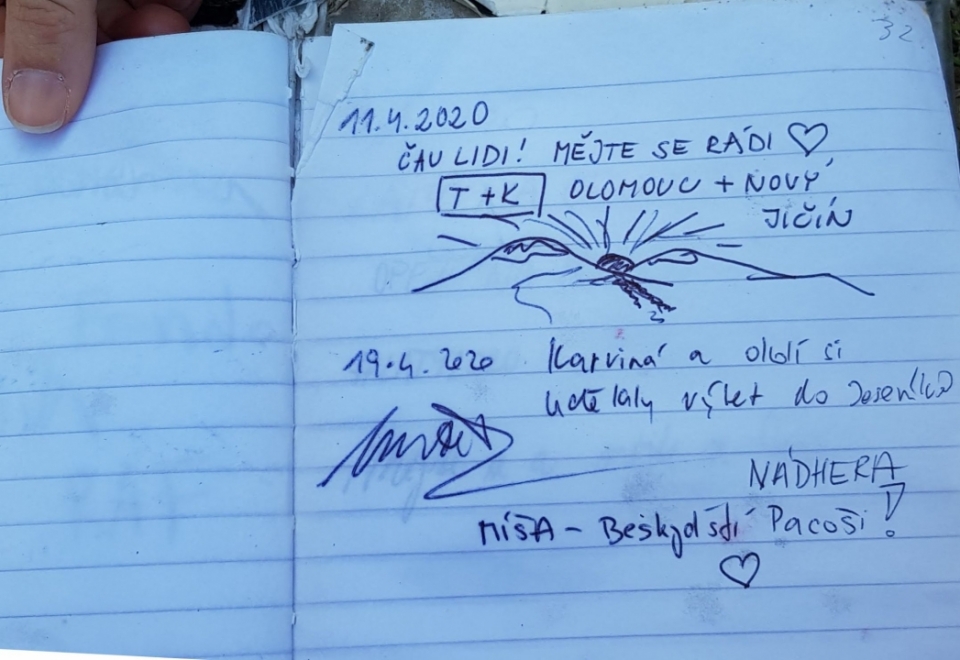 32
11.4.2020
ČAU LIDI! MĚJTE SE RÁDI ♡
T+K OLOMOUC + NOVÝ
JIČÍN
19.4.2020 Karviná a okolí si
udělaly výlet do Jeseníků
NÁDHERA!
MÍŠA - Beskydští Pacoši
♡